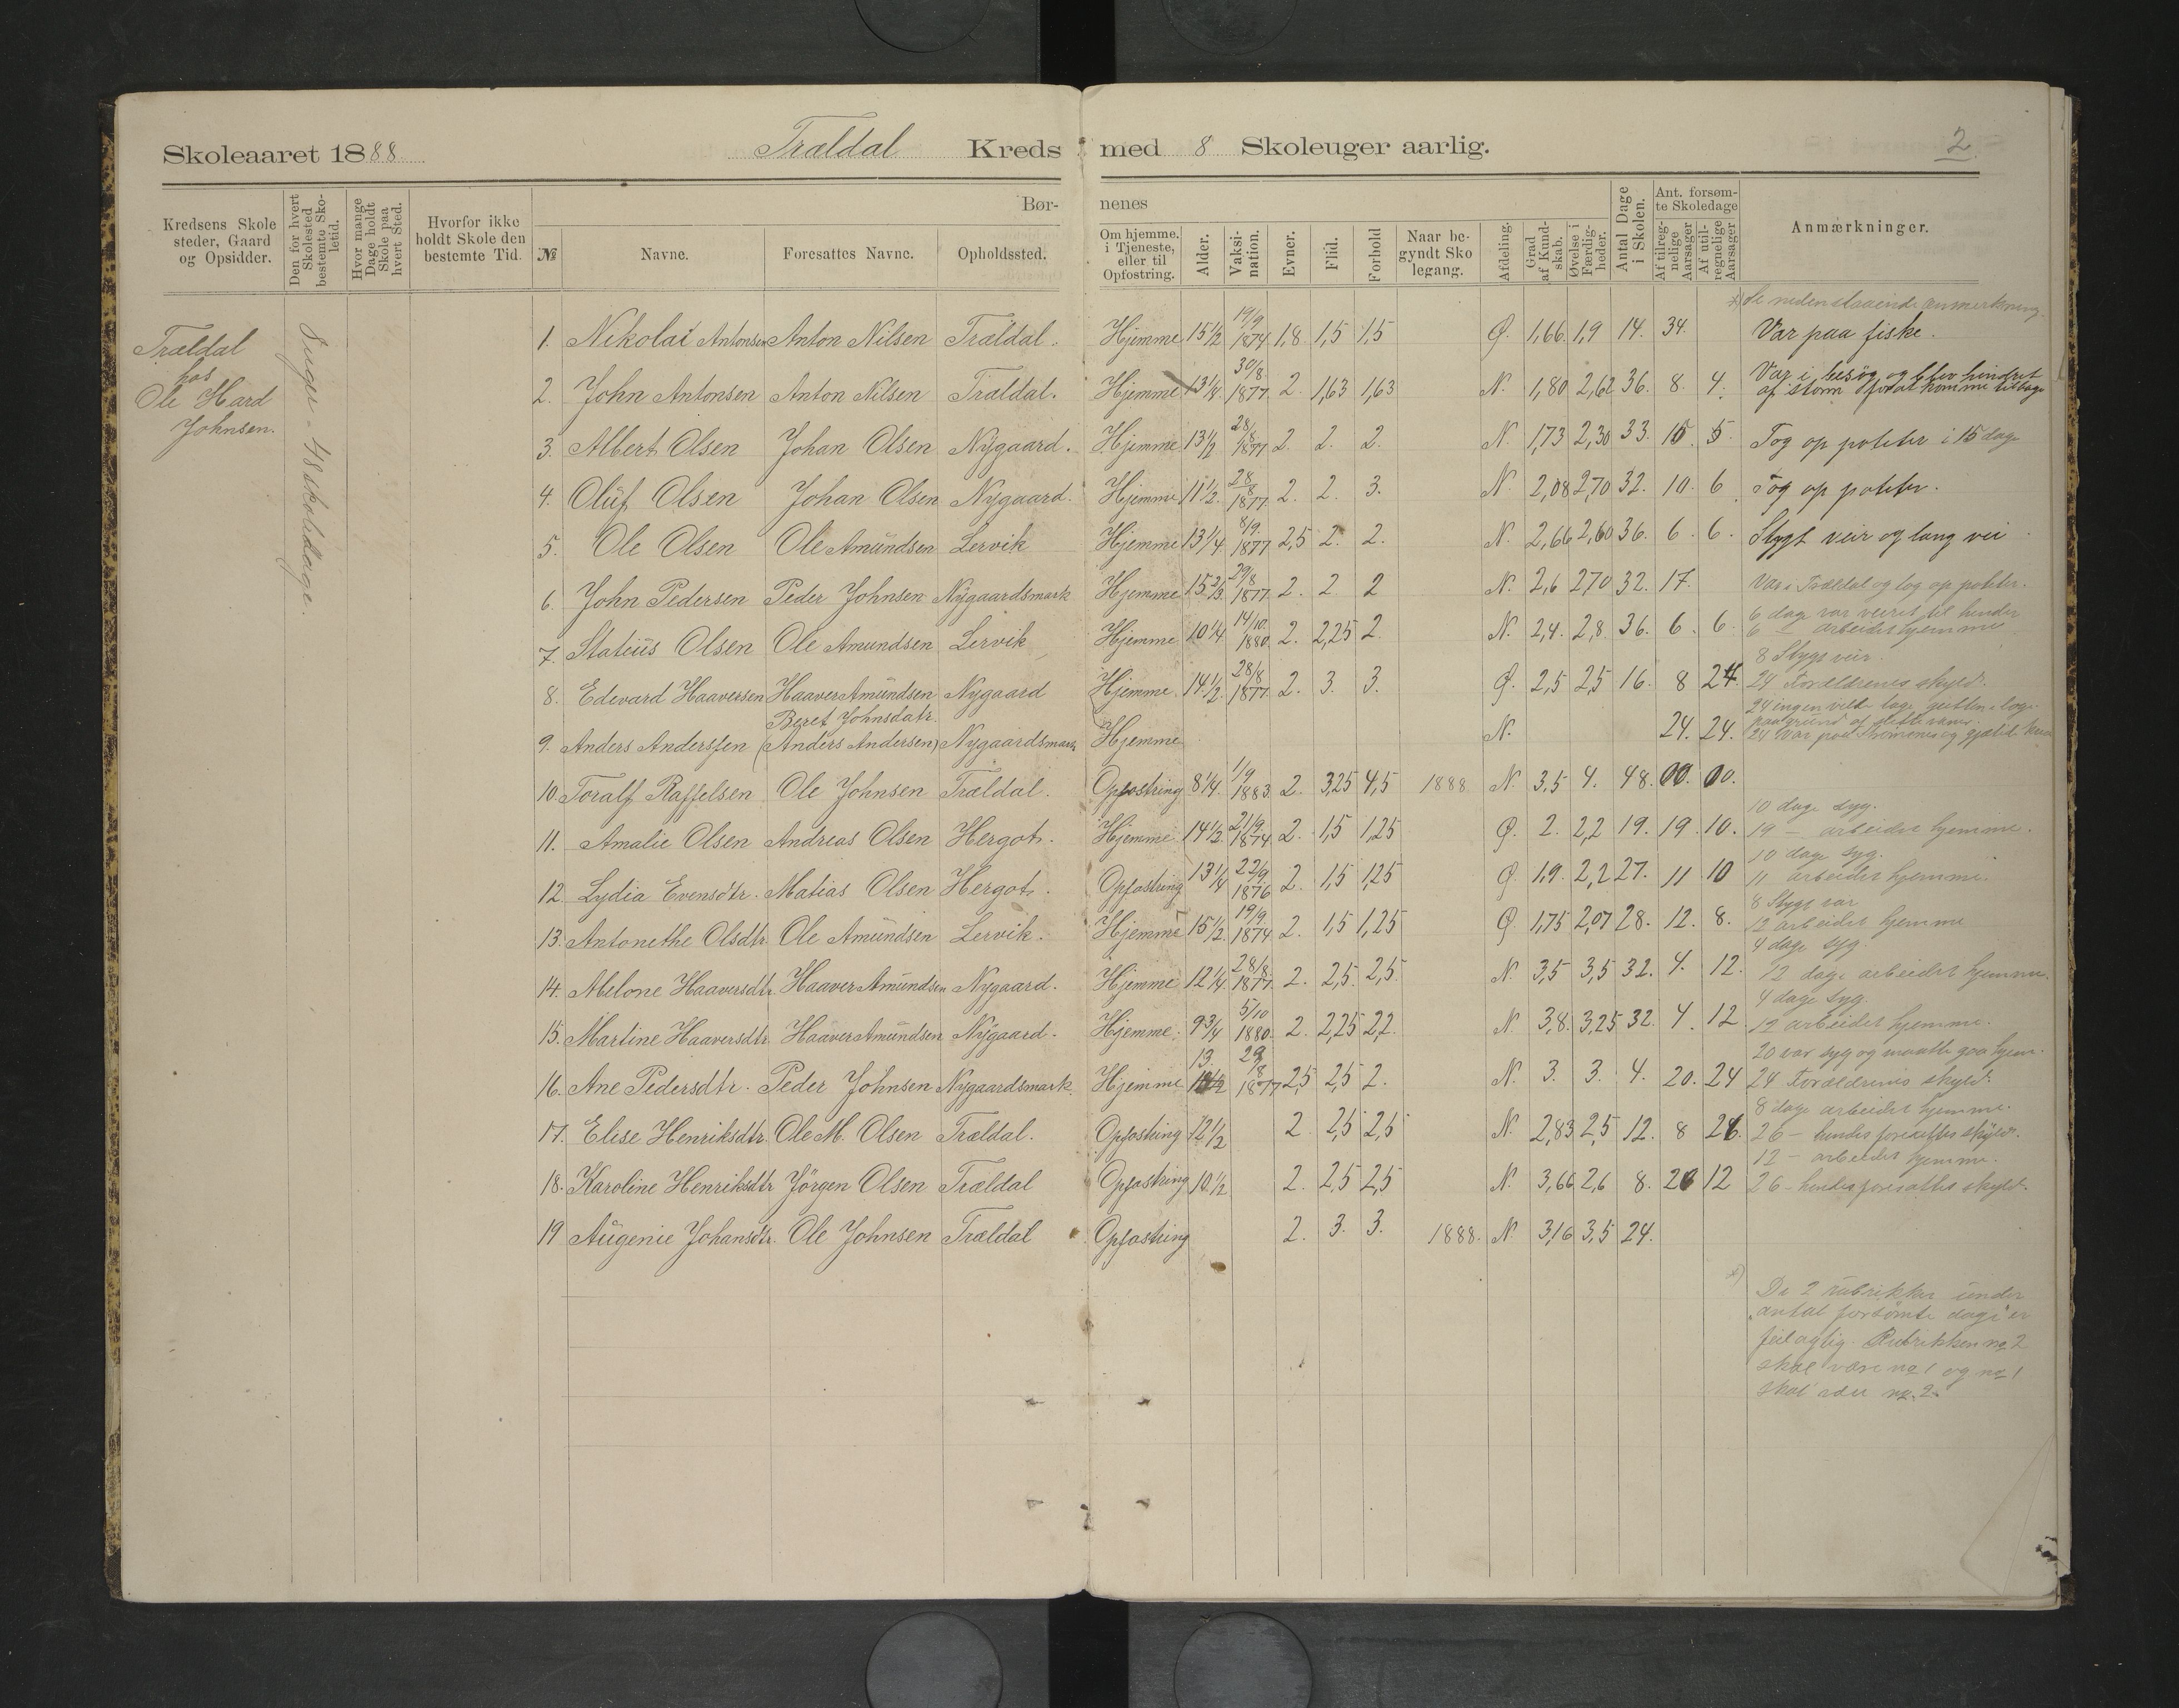 Skoleaaret 1888. Trældal Kreds med 8 Skoleuger aarlig. 2.
Kredsens Skolesteder, Gaard og Opsidder.
Den for hvert Skolested bestemte Skoletid.
Hvor mange Dage holdt Skole paa hvert Sted.
Hvorfor ikke holdt Skole den bestemte Tid.
Børnenes
№ Navne. Foresattes Navne. Opholdssted.
Om hjemme, i Tjeneste, eller til Opfostring. Alder. Vaksination. Evner. Flid. Forhold Naar begyndt Skolegang. Afdeling. Grad af Kundskab. Øvelse i Færdigheder. Antal Dage i Skolen. Ant. forsømte Skoledage Af tilregnelige Aarsager Af utilregnelige Aarsager Anmærkninger.
Trældal
hos
Ole Hard
Johnsen.
8 uger = 48 skoledage.
*) Se nedenstaaende anmerkning.
1. Nikolai Antonsen Anton Nilsen Trældal. Hjemme 15 1/2 19/9 1874 1,8 1,5 1,5 Ø. 1,66 1,9 14. 34. Var paa fiske.
2. John Antonsen Anton Nilsen Trældal. Hjemme 13 1/4 30/8 1877 2. 1,63 1,63 N. 1,80 2,62 36. 8. 4. Var i besøg og blev hindret
af storm for at komme tilbage
3. Albert Olsen Johan Olsen Nygaard. Hjemme 13 1/2 28/8 1877 2. 2. 2. N. 1,73 2,30 33. 15. 5. Tog op poteter i 15 dage
4. Oluf Olsen Johan Olsen Nygaard. Hjemme 11 1/2 28/8 1877 2. 2. 3. N. 2,08 2,70 32. 10. 6 Tog op poteter.
5. Ole Olsen Ole Amundsen Lervik Hjemme 13 1/4 8/9 1877 2,5 2. 2. N. 2,66 2,60 36. 6. 6. Stygt veir og lang vei
6. John Pedersen Peder Johnsen Nygaardsmark Hjemme 15 2/3 29/8 1877 2. 2. 2 N. 2,6 270 32. 17. Var i Trældal og tog op poteter.
7. Statius Olsen Ole Amundsen Lervik Hjemme 10 1/4 14/10 1880. 2. 2,25 2. N. 2,4. 2,8 36. 6. 6. 6 dage var veiret til hinder
6 – arbeidet hjemme
8. Edevard Haaversen Haaver Amundsen Nygaard Hjemme 14 1/2 28/8 1877 2. 3. 3. Ø. 2,5 2,5 16. 8 24. 8 Stygt veir.
24 Forældrenes skyld.
9. Anders Anderssen Beret Johnsdatr. (Anders Andersen) Nygaardsmark Hjemme N. 24. 24. 24 ingen vilde tage gutten i loge
paa grund af
24 Var paa og gjætet
10. Toralf Raffelsen Ole Johnsen Trældal. Opfostring 8 1/4 1/9 1883 2. 3,25 4,5 1888 N. 3,5 4. 48. 00. 00.
11. Amalie Olsen Andreas Olsen Hergot. Hjemme 14 1/2 21/9 1874 2. 1,5 1,25 Ø. 2. 2,2 19. 19. 10. 10 dage syg.
19 – arbeidet hjemme.
12. Lydia Evensdtr. Matias Olsen Hergot. Opfostring 13 1/4 22/9 1876 2. 1,5 1,25 Ø 1,9. 2,2 27. 11 10 10 dage syg.
11 arbeidet hjemme.
13. Antonethe Olsdtr. Ole Amundsen Lervik. Hjemme 15 1/2. 19/9 1874 2. 1,5 1,25 Ø 1,75 2,07 28. 12. 8. 8 Stygt var
12 arbeidet hjemme
14. Melone Haaversdtr. Haaver Amundsen Nygaard. Hjemme 12 1/4 28/8 1877 2. 2,5. 2,5. N. 3,5 3,5 32. 4. 12. 4 dage syg.
12 dage arbeidet hjemme.
15. Martine Haaversdtr. Haaver Amundsen Nygaard. Hjemme. 9 3/4 5/10 1880 2. 2,25 2,2. N. 3,8. 3,25 32. 4. 12 4 dage syg.
12 arbeidet hjemme.
16. Ane Pedersdtr. Peder Johnsen Nygaardsmark. Hjemme 13 29/8 1877 2,5 2,5 2. N. 3. 3. 4. 20. 24 20 var syg og maatte gaa hjem.
24 Forældrenes skyld.
17. Elise Henriksdtr. Ole M. Olsen Trældal. Opfostring 12 1/2 2. 2,5 2,5 N. 2,83 2,5 12. 8 26. 8 dage arbeidet hjemme.
26 – hendes foresattes skyld.
18. Karoline Henriksdtr Jørgen Olsen Trældal Opfostring 10 1/2 2. 2,5 2,5 N. 3,66 2,6 8. 26 12 12 – arbeidet hjemme.
26 – hendes foresattes skyld.
19 Augenie Johansdtr. Ole Johnsen Trældal Opfostring 2. 3. 3. 1888. N 3,16 3,5 24.
*) De 2 rubrikker under
"antal forsømte dage" er
feilagtig. Rubrikken no 2
skal være no 1 og no 1
skal være no. 2.